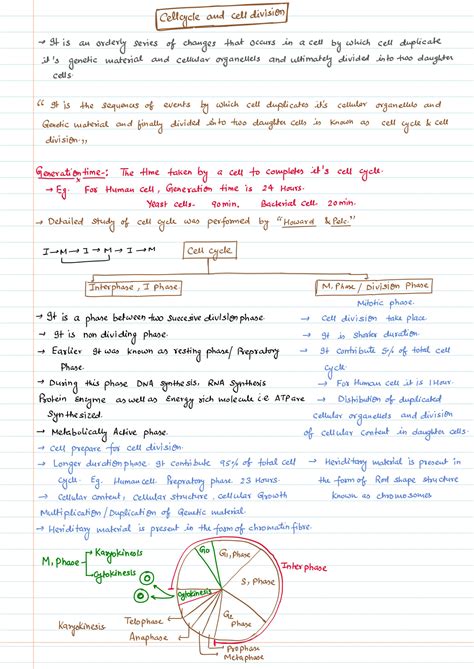 Cellcycle and cell division
→ It is an orderly series of changes that occurs in a cell by which cell duplicate
it's genetic material and cellular organells and ultimately divided into two daughter
cells.
“ It is the sequences of events by which cell duplicates it's cellular organelles and
Genetic material and finally divided into two daughter cells is known as cell cycle & cell
division.„
Generation time-: The time taken by a cell to completes it's cell cycle.
→ Eg. For Human cell, Generation time is 24 Hours.
Yeast cells- 90min. Bacterial cell- 20min.
→ Detailed study of cell cycle was performed by “Howard & Pelc.”
I → M → I → M → I → M
Cell cycle
Interphase, I phase
M, Phase / Division Phase
Mitotic phase.
→ It is a phase between two succesive division phase.
→ It is non dividing phase.
→ Earlier It was known as resting phase/ Prepratory
Phase.
→ During this phase DNA synthesis, RNA Synthesis
Protein Enzyme as well as Energy rich molecule i.e ATP are
Synthesized.
→ Metabolically Active phase.
→ cell prepare for cell division.
→ Longer duration phase. It contribute 95% of total cell
cycle. Eg. Human cell Preparatory phase 23 Hours.
→ Cellular content, Cellular structure, cellular Growth
Multiplication/Duplication of Genetic material.
→ Heriditary material is present in the form of chromatin fibre.
→ Cell division take place
→ It is Shorter duration.
→ It contribute 5% of total cell
cycle
→ For Human cell it is 1 Hour.
→ Distibution of duplicated
cellular organells and division
of cellular content in daughter cells.
→ Heriditary material is present in
the form of Rod shape structure
known as chromosomes
M, Phase
Karyokinesis
Cytokinesis
G0
G1, Phase
Interphase
S, Phase
Cytokinesis
G2
Phase
Karyokinesis
Telophase
Anaphase
Prophase
Metaphase